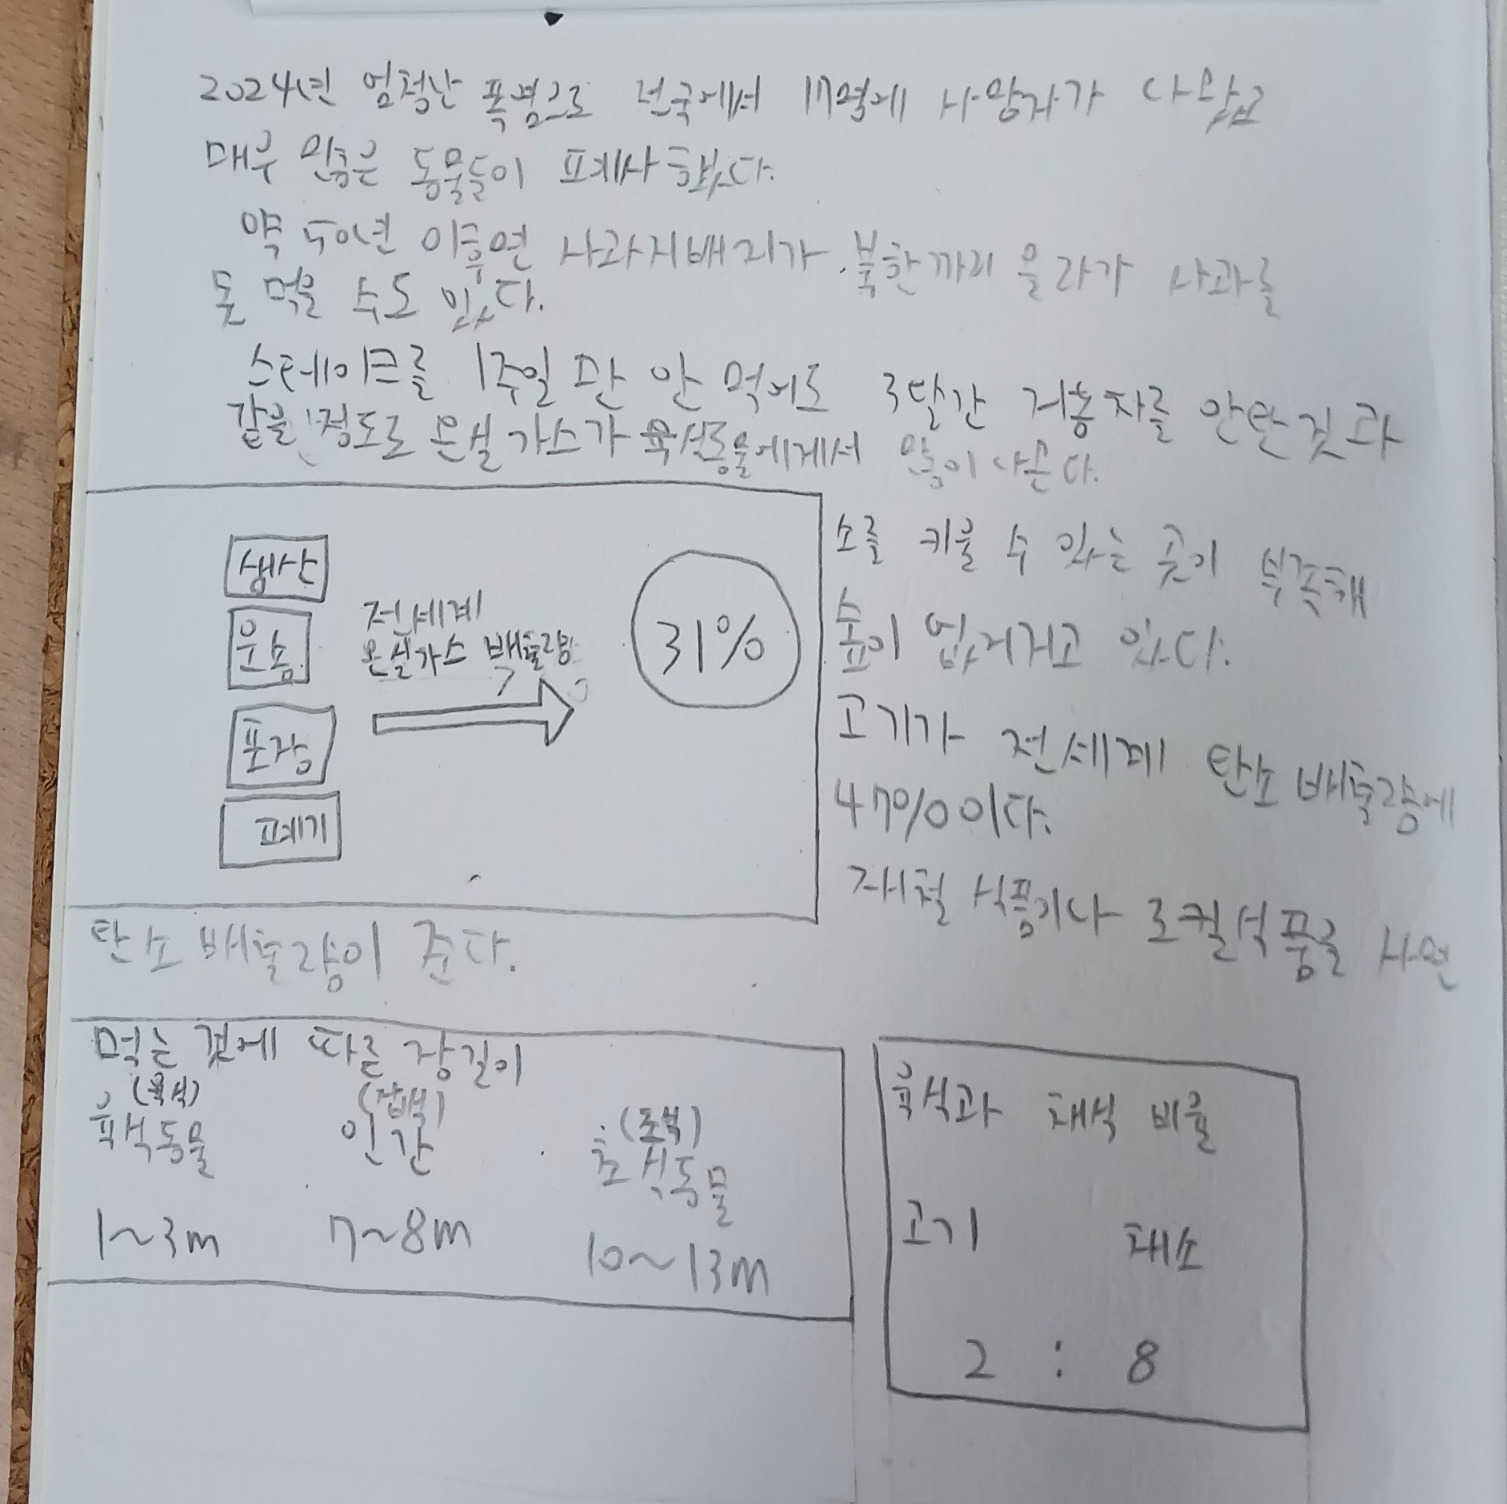 2024년 엄청난 폭염으로 전국에서 17명에 사망자가 나왔고
매우 많은 동물들이 폐사 했다.
약 50년 이후엔 사과재배지가 북한까지 올라가 사과를
못 먹을 수도 있다.
스테이크를 1주일 만 안 먹어도 3달간 자동차를 안탄것 과
같을 정도로 온실 가스가 육식동물에게서 많이 나온다.
생산
운송
포장
폐기
전세계
온실가스 배출량
31%
소를 키울 수 있는 곳이 부족해
숲이 없어지고 있다.
고기가 전세계 탄소 배출량에
47%이다.
재철 식품이나 로컬식품을 사면
탄소 배출량이 준다.
먹는 것에 따른 장길이
(육식) (잡식) (초식)
육식동물 인간 초식동물
1~3m 7~8m 10~13m
육식과 채식 비율
고기 채소
2 : 8